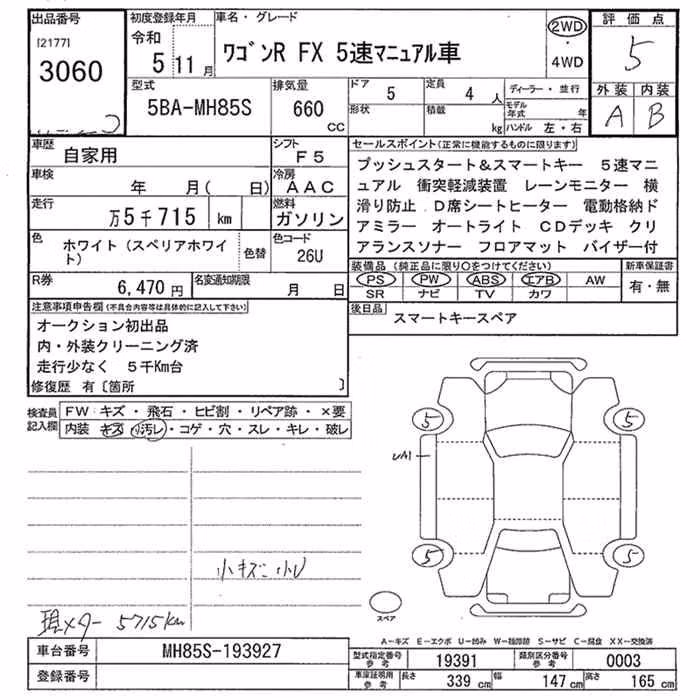 出品番号
[2177]
3060
初度登録年月
令和
5 11 月
車名・グレード
ワゴンR FX 5速マニュアル車
2WD
・
4WD
評価点
5
外装 内装
A B
型式
5BA-MH85S
排気量
660
CC
ドア
5
定員
4 人
形状
積載
kg
ディーラー・並行
モデル年式 年
ハンドル 左・右
車歴
自家用
シフト
F5
車検
年 月( 日)
冷房
AAC
走行
万5千715 km
燃料
ガソリン
色
ホワイト(スペリアホワイト)
色替
色コード
26U
R券
6,470円
名変通知期限
月 日
セールスポイント(正常に機能するものに限ります)
プッシュスタート&スマートキー 5速マニ
ュアル 衝突軽減装置 レーンモニター 横
滑り防止 D席シートヒーター 電動格納ド
アミラー オートライト CDデッキ クリ
アランスソナー フロアマット バイザー付
装備品(純正品に限り○をつけてください)
PS PW ABS エアB AW
SR ナビ TV カワ
新車保証書
有・無
後日品
スマートキースペア
注意事項申告欄(不具合内容等は具体的に記入して下さい)
オークション初出品
内・外装クリーニング済
走行少なく 5千Km台
修復歴 有〔箇所 〕
検査員
記入欄
FW キズ・飛石・ヒビ割・リペア跡・×要
内装 キズ・汚レ・コゲ・穴・スレ・キレ・破レ
5 5
UA1
5 5
スペア
小キズ小U
現メター 5715km
A−キズ E−エクボ U−凹み W−補修跡 S−サビ C−腐食 XX−交換済
車台番号
MH85S-193927
登録番号
型式指定番号
参考
19391
類別区分番号
参考
0003
車庫証明用
参考
長さ 339 cm 幅 147 cm 高さ 165 cm